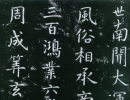 世南聞大運
風俗相承帝
三百鴻業六
周成筭玄